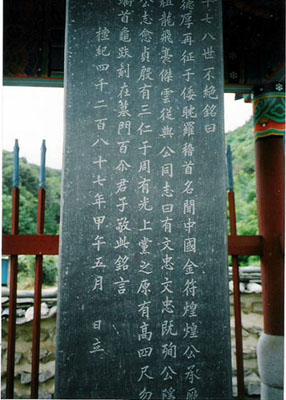 十七八世不絶銘曰
德厚再征于倭耽羅稽首名聞中國金符煌煌公承厥
祖龍飛臺傑雲從與公同志曰有文忠文忠旣殉公隱
公志愈貞殷有三仁于周有光上黨之原有高四尺
螭首龜趺刻在墓門百尒君子敬此銘言
檀紀四千二百八十七年甲午五月 日立